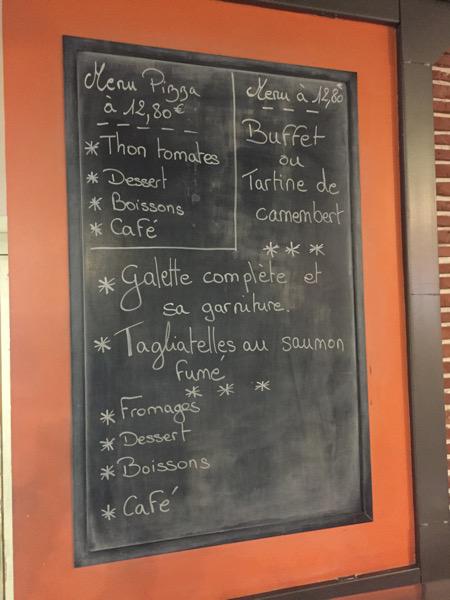 Menu Pizza
à 12,80€
* Thon tomates
* Dessert
* Boissons
* Café
Menu à 12,80
Buffet
ou
Tartine de
camembert
* * *
* Galette complète et
sa garniture.
* Tagliatelles au saumon
fumé
* * *
* Fromages
* Dessert
* Boissons
* Café